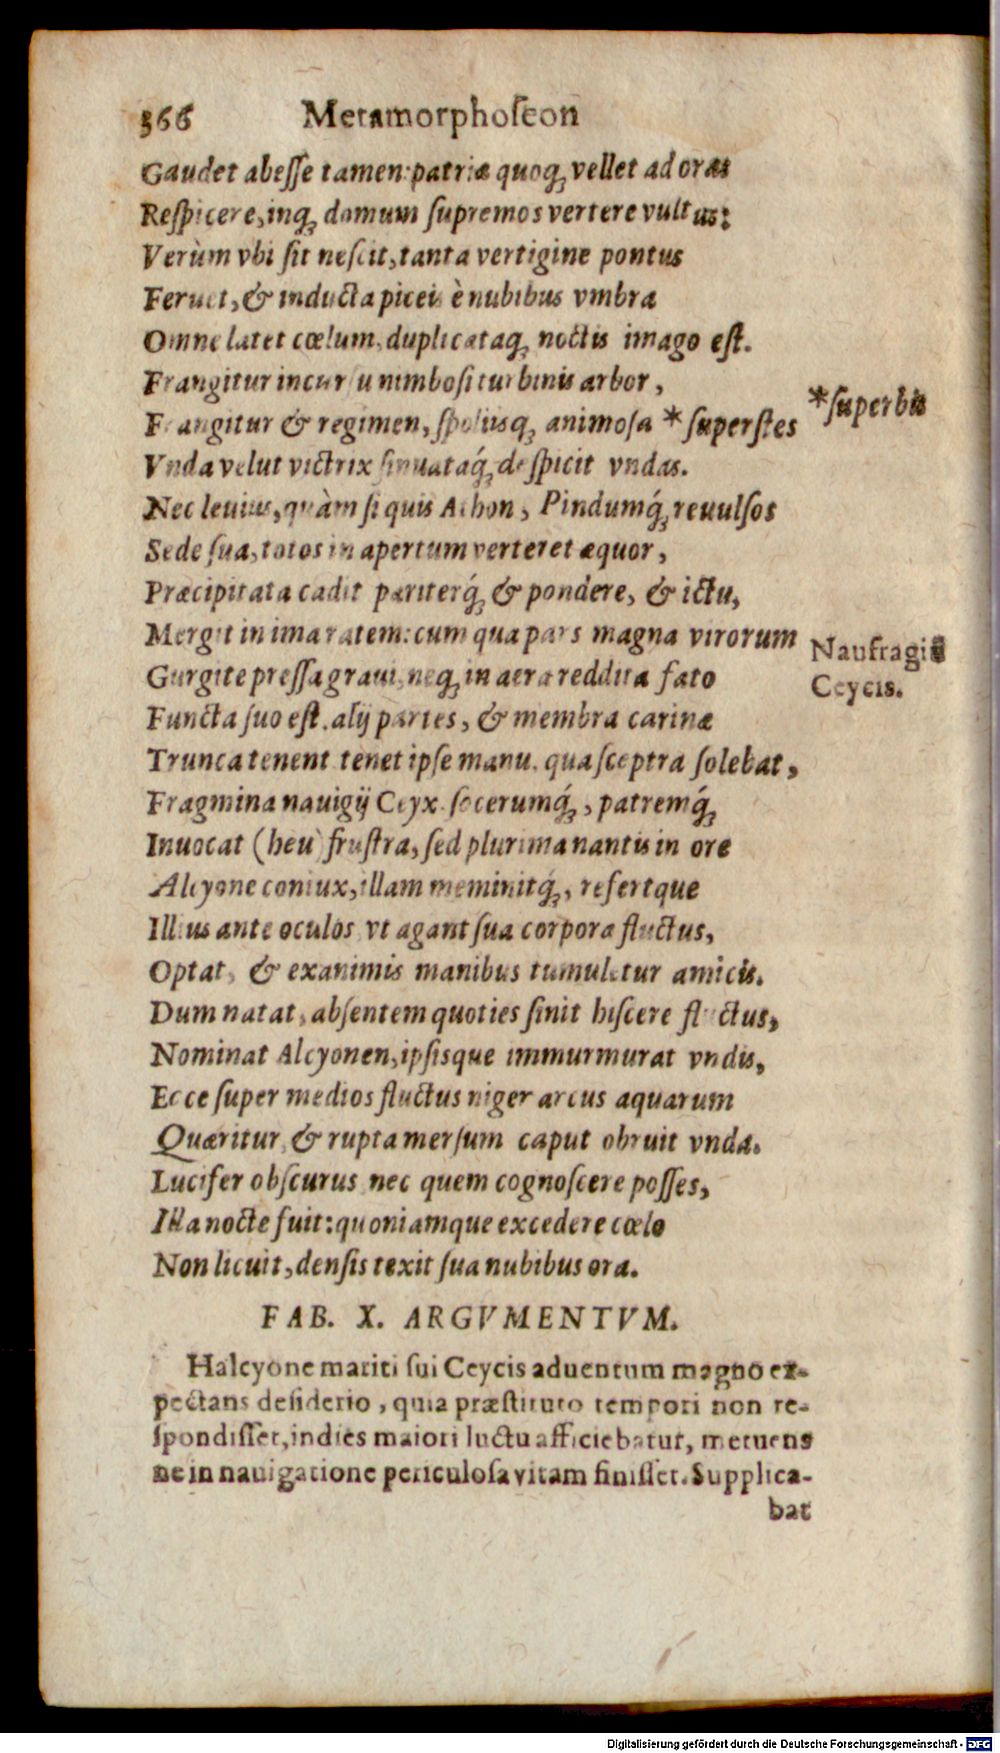 366 Metamorphoſeon
Gaudet abeſſe tamen: patriæ quoq; vellet ad oras
Reſpicere, inq; domum ſupremos vertere vultus:
Verùm vbi ſit neſcit, tanta vertigine pontus
Feruet, & inducta piceis è nubibus vmbra
Omne latet cœlum, duplicataq; noctis imago eſt.
Frangitur incurſu nimboſi turbinis arbor,
Frangitur & regimen, ſpoliisq; animoſa * ſuperſtes
*ſuperbit
Vnda velut victrix ſinuataq́; deſpicit vndas.
Nec leuius, quàm ſi quis Athon, Pindumq́; reuulſos
Sede ſua, totos in apertum verteret æquor,
Præcipitata cadit pariterq́; & pondere, & ictu,
Mergit in ima ratem: cum qua pars magna virorum
Naufragiū
Ceycis.
Gurgite preſſa graui, neq; in aera reddita fato
Functa ſuo eſt. alij partes, & membra carinæ
Trunca tenent. tenet ipſe manu, qua ſceptra ſolebat,
Fragmina nauigij Ceyx. ſocerumq́;, patremq́;
Inuocat (heu) fruſtra, ſed plurima nantis in ore
Alcyone coniux, illam meminitq́;, refertque
Illius ante oculos vt agant ſua corpora fluctus,
Optat, & exanimis manibus tumuletur amicis.
Dum natat, abſentem quoties ſinit hiſcere fluctus,
Nominat Alcyonen, ipſisque immurmurat vndis,
Ecce ſuper medios fluctus niger arcus aquarum
Quæritur, & rupta merſum caput obruit vnda.
Lucifer obſcurus nec quem cognoſcere poſſes,
Illa nocte fuit: quoniamque excedere cœlo
Non licuit, denſis texit ſua nubibus ora.
FAB. X. ARGVMENTVM.
Halcyone mariti ſui Ceycis aduentum magno ex-
pectans deſiderio, quia præſtituto tempori non re-
ſpondiſſet, indies maiori luctu afficiebatur, metuens
ne in nauigatione periculoſa vitam finiſſet. Supplica-
bat
Digitalisierung gefördert durch die Deutsche Forschungsgemeinschaft - DFG